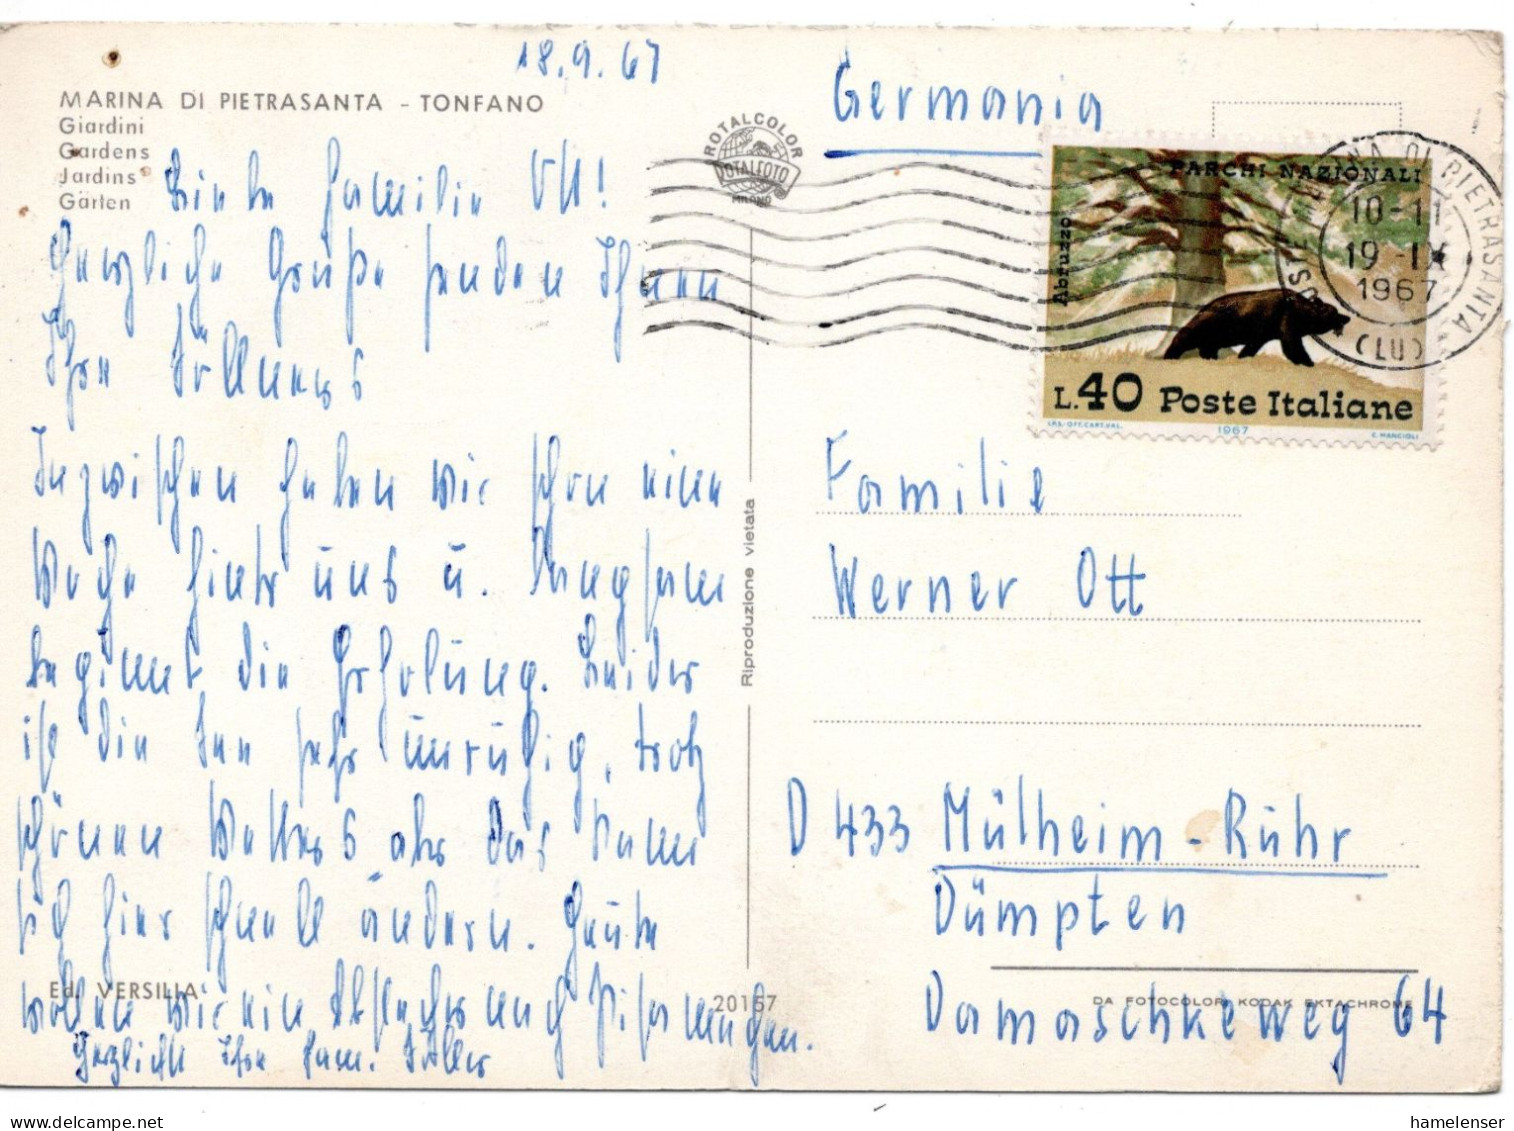 18.9.67
MARINA DI PIETRASANTA - TONFANO
Giardini
Gardens
Jardins
Gärten
Liebe Familie Ott!
Herzliche Grüße senden Ihnen
Ihre
Inzwischen haben wir schon eine
Woche hinter uns u. langsam
beginnt die Erholung. Leider
ist die See sehr unruhig, trotz
schönen Wetters aber das kann
sich hier schnell ändern. Heute
wollen wir ein nach Pisa machen.
Herzlichst Ihre Fam.
Ed. VERSILIA
20157
Riproduzione vietata
ROTALCOLOR
ROTALFOTO
MILANO
Germania
PARCHI NAZIONALI
Abruzzo
L.40 Poste Italiane
I.P.S.-OFF.CART.VAL. 1967 C. MANCIOLI
POSTE MARINA DI PIETRASANTA
10-11
19-IX
1967
(LU)
Familie
Werner Ott
D 433 Mülheim-Ruhr
Dümpten
Damaschkeweg 64
DA FOTOCOLOR KODAK EKTACHROME
hamelenser